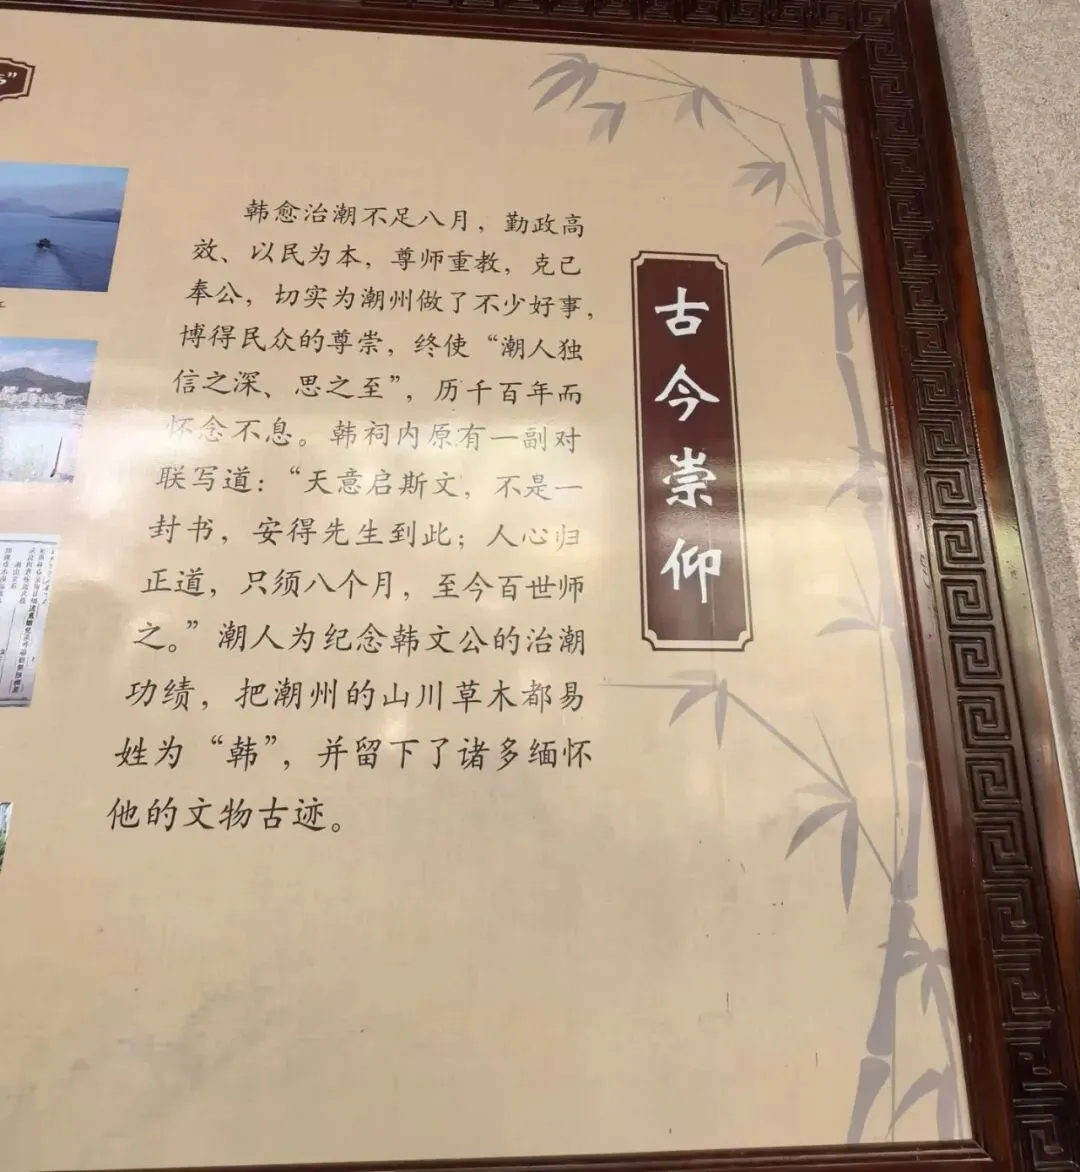 古今崇仰
韩愈治潮不足八月，勤政高
效、以民为本，尊师重教，克己
奉公，切实为潮州做了不少好事，
博得民众的尊崇，终使“潮人独
信之深、思之至”，历千百年而
怀念不息。韩祠内原有一副对
联写道：“天意启斯文，不是一
封书，安得先生到此；人心归
正道，只须八个月，至今百世师
之。”潮人为纪念韩文公的治潮
功绩，把潮州的山川草木都易
姓为“韩”，并留下了诸多缅怀
他的文物古迹。